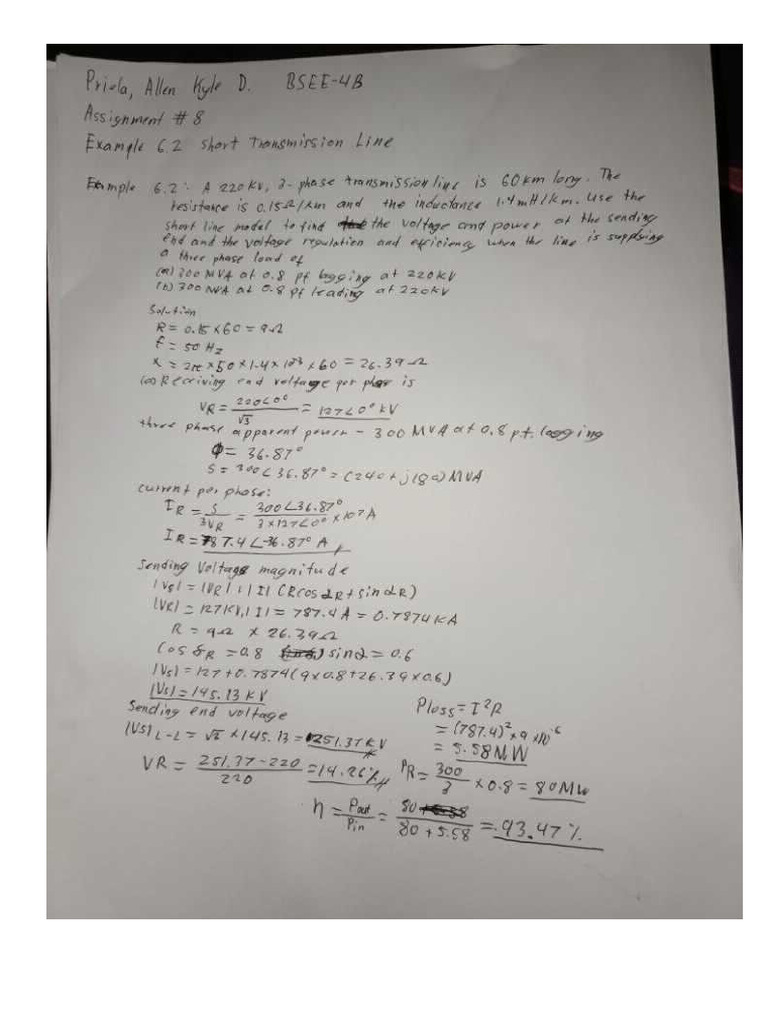 Priela, Allen Kyle D. BSEE-4B
Assignment # 8
Example 6.2 Short Transmission Line
Example 6.2: A 220 kV, 3-phase transmission line is 60 km long. The
resistance is 0.15Ω/km and the inductance 1.4 mH/km. use the
short line model to find the voltage and power at the sending
end and the voltage regulation and efficiency when the line is supplying
a three phase load of
(a) 300 MVA at 0.8 pf lagging at 220kV
(b) 300 MVA at 0.8 pf leading at 220kV
Solution
R = 0.15 × 60 = 9Ω
f = 50 Hz
x = 2π × 50 × 1.4 × 10³ × 60 = 26.39 Ω
(a) Receiving end voltage per phase is
VR = 220<0° / √3 = 127<0° kV
three phase apparent power - 300 MVA at 0.8 pf. lagging
Φ = 36.87°
S = 300∠36.87° = (240 + j180) MVA
current per phase:
IR = S / 3VR = 300∠36.87° / 3×127∠0° × 10³ A
IR = 787.4 ∠-36.87° A
Sending Voltage magnitude
|Vs| = |VR| + |I| (Rcos αR + sin αR)
|VR| = 127 kV, |I| = 787.4 A = 0.7874 kA
R = 9Ω × 26.39Ω
Cos δR = 0.8 sin α = 0.6
|Vs| = 127 + 0.7874 (9 × 0.8 + 26.39 × 0.6)
|Vs| = 145.13 kV
Sending end voltage
|VS| L-L = √3 × 145.13 = 251.37 kV
VR = 251.37 - 220 / 220 = 14.26%
Ploss = I²R
= (787.4)² × 9 × 10⁻⁶
= 5.58 MW
PR = 300 / 3 × 0.8 = 80 MW
η = Pout / Pin = 80 / 80 + 5.58 = 93.47 %